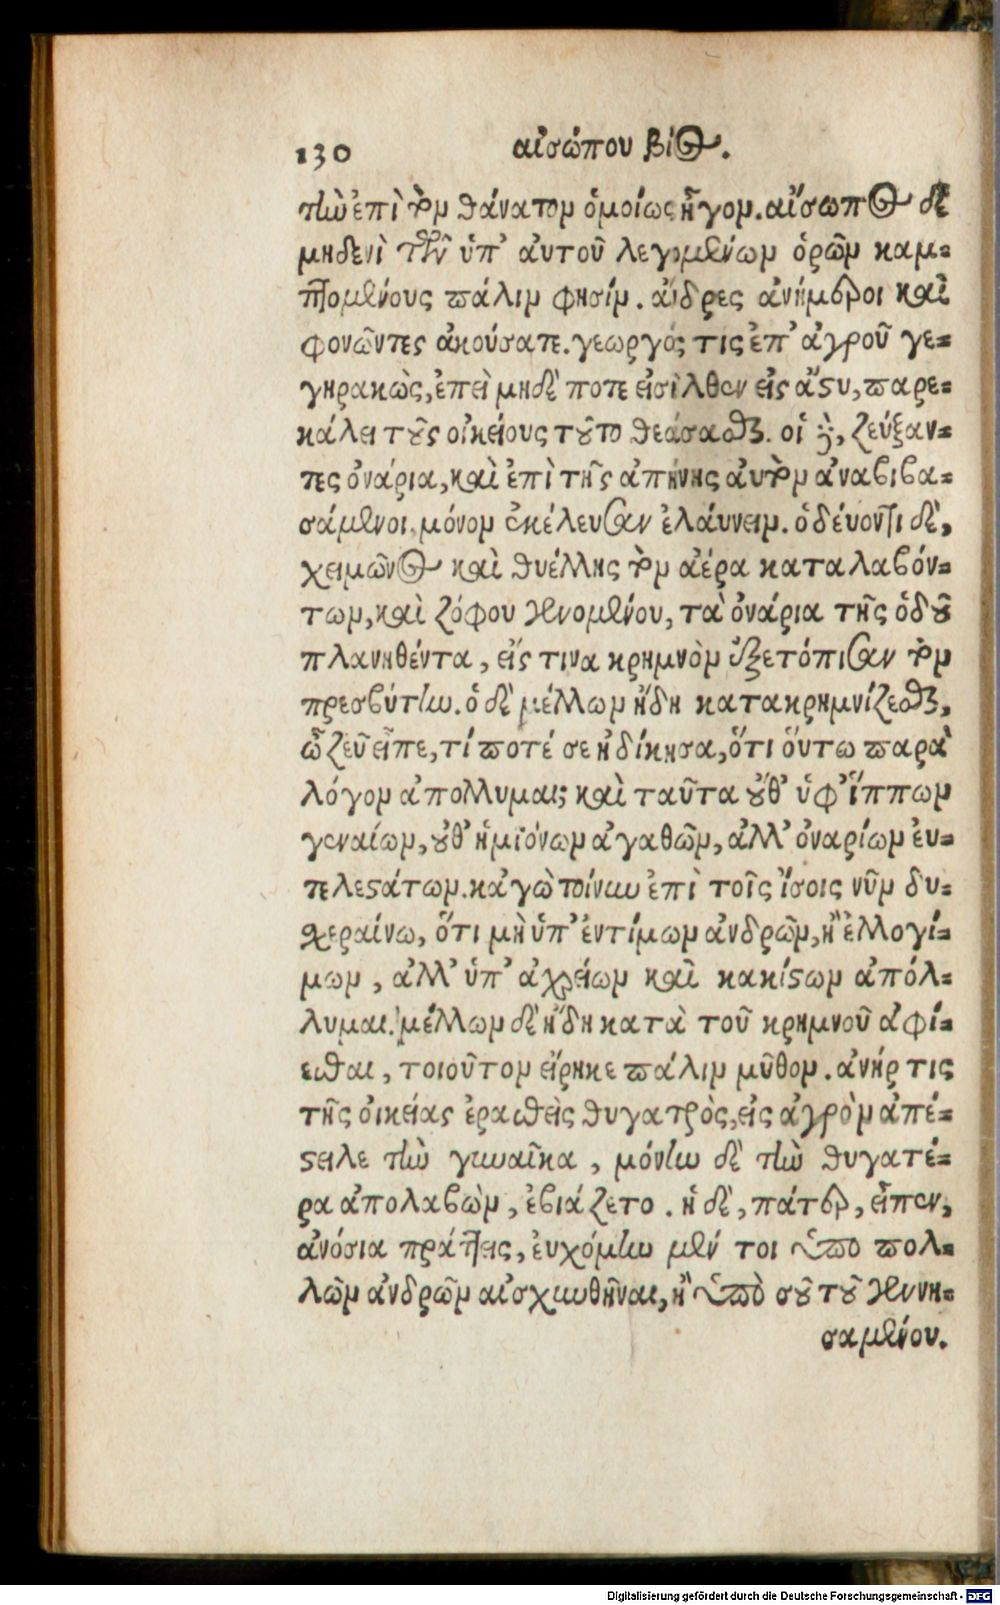 130 αἰσώπου βίος.
τὴν ἐπὶ τὸν θάνατον ὁμοίως ἦγον. αἴσωπος δὲ
μηδενὶ τῶν ὑπ' αὐτοῦ λεγομένων ὁρῶν καμ-
πτομένους πάλιν φησίν. ἄνδρες ἀνήμεροι καὶ
φονῶντες ἀκούσατε. γεωργός τις ἐπ' ἀγροῦ γε-
γηρακὼς, ἐπεὶ μηδέ ποτε εἰσῆλθεν εἰς ἄστυ, παρε-
κάλει τοὺς οἰκείους τοῦτο θεάσασθαι. οἱ δὲ, ζεύξαν-
τες ὀνάρια, καὶ ἐπὶ τῆς ἀπήνης αὐτὸν ἀναβιβα-
σάμενοι, μόνον ἐκέλευσαν ἐλάυνειν. ὁδέυοντι δὲ,
χειμῶνος καὶ θυέλλης τὸν ἀέρα καταλαβόν-
των, καὶ ζόφου γενομένου, τὰ ὀνάρια τῆς ὁδοῦ
πλανηθέντα, εἴς τινα κρημνὸν ἐξετόπισαν τὸν
πρεσβύτην. ὁ δὲ μέλλων ἤδη κατακρημνίζεσθαι,
ὦ ζεῦ εἶπε, τί ποτέ σε ἠδίκησα, ὅτι ὅυτω παρὰ
λόγον ἀπολλυμαι; καὶ ταῦτα οὔθ' ὑφ' ἵππων
γεναίων, οὔθ' ἡμϊόνων ἀγαθῶν, ἀλλ' ὀναρίων ἐυ-
τελεστάτων. κᾀγὼ τοίνυν ἐπὶ τοῖς ἴσοις νῦν δυ-
σχεραίνω, ὅτι μὴ ὑπ' ἐντίμων ἀνδρῶν, ἢ ἐλλογί-
μων, ἀλλ' ὑπ' ἀχρείων καὶ κακίστων ἀπόλ-
λυμαι. μέλλων δὲ ἤδη κατὰ τοῦ κρημνοῦ ἀφί-
εσθαι, τοιοῦτον εἴρηκε πάλιν μῦθον. ἀνήρ τις
τῆς ὀικείας ἐρασθεὶς θυγατρὸς, εἰς ἀγρὸν ἀπέ-
στειλε τὴν γυναῖκα, μόνην δὲ τὴν θυγατέ-
ρα ἀπολαβὼν, ἐβιάζετο. ἡ δὲ, πάτερ, εἶπεν,
ἀνόσια πράττεις, ἐυχόμην μέν τοι ὑπὸ πολ-
λῶν ἀνδρῶν αἰσχυνθῆναι, ἢ ὑπὸ σοῦ τοῦ γεννη-
σαμένου.
Digitalisierung gefördert durch die Deutsche Forschungsgemeinschaft - DFG